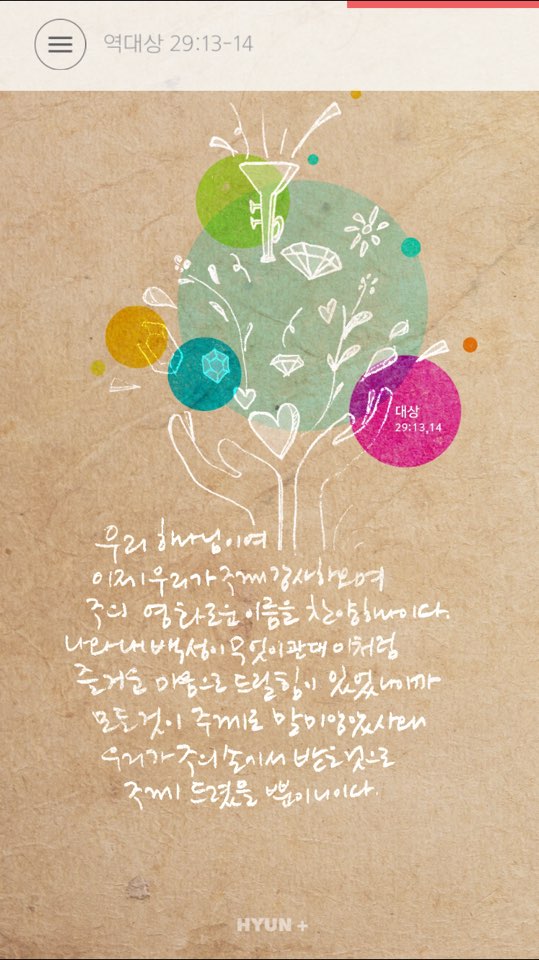 역대상 29:13-14
대상
29:13,14
우리 하나님이여
이제 우리가 주께 감사하오며
주의 영화로운 이름을 찬양하나이다.
나와 내 백성이 무엇이관대 이처럼
즐거운 마음으로 드릴 힘이 있었나이까
모든 것이 주께로 말미암았사오니
우리가 주의 손에서 받은 것으로
주께 드렸을 뿐이니이다.
HYUN +